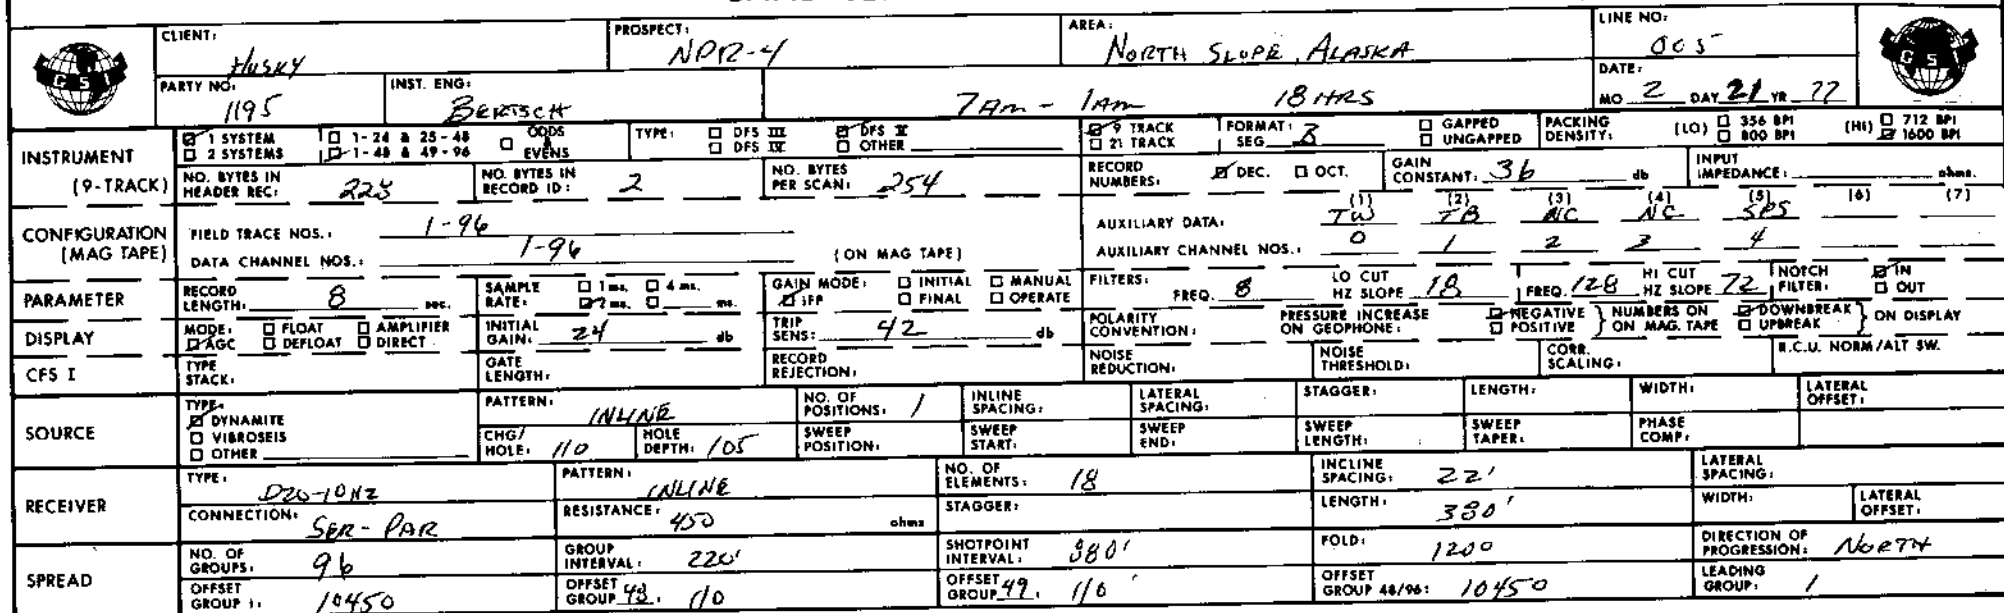 CLIENT: HUSKY PROSPECT: NPR-4 AREA: NORTH SLOPE, ALASKA LINE NO: 005
GSI GSI
PARTY NO: 1195 INST. ENG: BERTSCH 7AM - 1AM 18 HRS DATE: MO 2 DAY 21 YR 77
INSTRUMENT (9-TRACK)
☑ 1 SYSTEM ☐ 1-24 & 25-48 ☐ ODDS & EVENS TYPE: ☐ DFS III ☑ DFS V ☑ 9 TRACK FORMAT: SEG B ☐ GAPPED PACKING DENSITY: (LO) ☐ 356 BPI (HI) ☐ 712 BPI
☐ 2 SYSTEMS ☑ 1-48 & 49-96 ☐ DFS IV ☐ OTHER ☐ 21 TRACK ☐ UNGAPPED ☐ 800 BPI ☑ 1600 BPI
NO. BYTES IN HEADER REC: 228 NO. BYTES IN RECORD ID: 2 NO. BYTES PER SCAN: 254 RECORD NUMBERS: ☑ DEC. ☐ OCT. GAIN CONSTANT: 36 db INPUT IMPEDANCE: ohms.
CONFIGURATION (MAG TAPE)
(1) (2) (3) (4) (5) (6) (7)
FIELD TRACE NOS.: 1-96 AUXILIARY DATA: TW TB NC NC SPS
DATA CHANNEL NOS.: 1-96 (ON MAG TAPE) AUXILIARY CHANNEL NOS.: 0 1 2 3 4
PARAMETER RECORD LENGTH: 8 sec. SAMPLE RATE: ☐ 1 ms. ☐ 4 ms. ☑ 2 ms. ☐ ms. GAIN MODE: ☐ INITIAL ☐ MANUAL ☑ IFP ☐ FINAL ☐ OPERATE FILTERS: FREQ. 8 LO CUT HZ SLOPE 18 FREQ. 128 HI CUT HZ SLOPE 72 NOTCH FILTER: ☑ IN ☐ OUT
DISPLAY MODE: ☐ FLOAT ☐ AMPLIFIER ☑ AGC ☐ DEFLOAT ☐ DIRECT INITIAL GAIN: 24 db TRIP SENS: 42 db POLARITY CONVENTION: PRESSURE INCREASE ON GEOPHONE: ☑ NEGATIVE ☐ POSITIVE } NUMBERS ON MAG. TAPE ☑ DOWNBREAK ☐ UPBREAK } ON DISPLAY
CFS I TYPE STACK: GATE LENGTH: RECORD REJECTION: NOISE REDUCTION: NOISE THRESHOLD: CORR. SCALING: R.C.U. NORM/ALT SW.
SOURCE TYPE: ☑ DYNAMITE ☐ VIBROSEIS ☐ OTHER
PATTERN: INLINE NO. OF POSITIONS: 1 INLINE SPACING: LATERAL SPACING: STAGGER: LENGTH: WIDTH: LATERAL OFFSET:
CHG/HOLE: 110 HOLE DEPTH: 105 SWEEP POSITION: SWEEP START: SWEEP END: SWEEP LENGTH: SWEEP TAPER: PHASE COMP:
RECEIVER TYPE: D20-10HZ PATTERN: INLINE NO. OF ELEMENTS: 18 INCLINE SPACING: 22' LATERAL SPACING:
CONNECTION: SER-PAR RESISTANCE: 450 ohms STAGGER: LENGTH: 380' WIDTH: LATERAL OFFSET:
SPREAD NO. OF GROUPS: 96 GROUP INTERVAL: 220' SHOTPOINT INTERVAL: 880' FOLD: 1200 DIRECTION OF PROGRESSION: NORTH
OFFSET GROUP 1: 10450 OFFSET GROUP 48: 110 OFFSET GROUP 49: 110' OFFSET GROUP 48/96: 10450 LEADING GROUP: 1